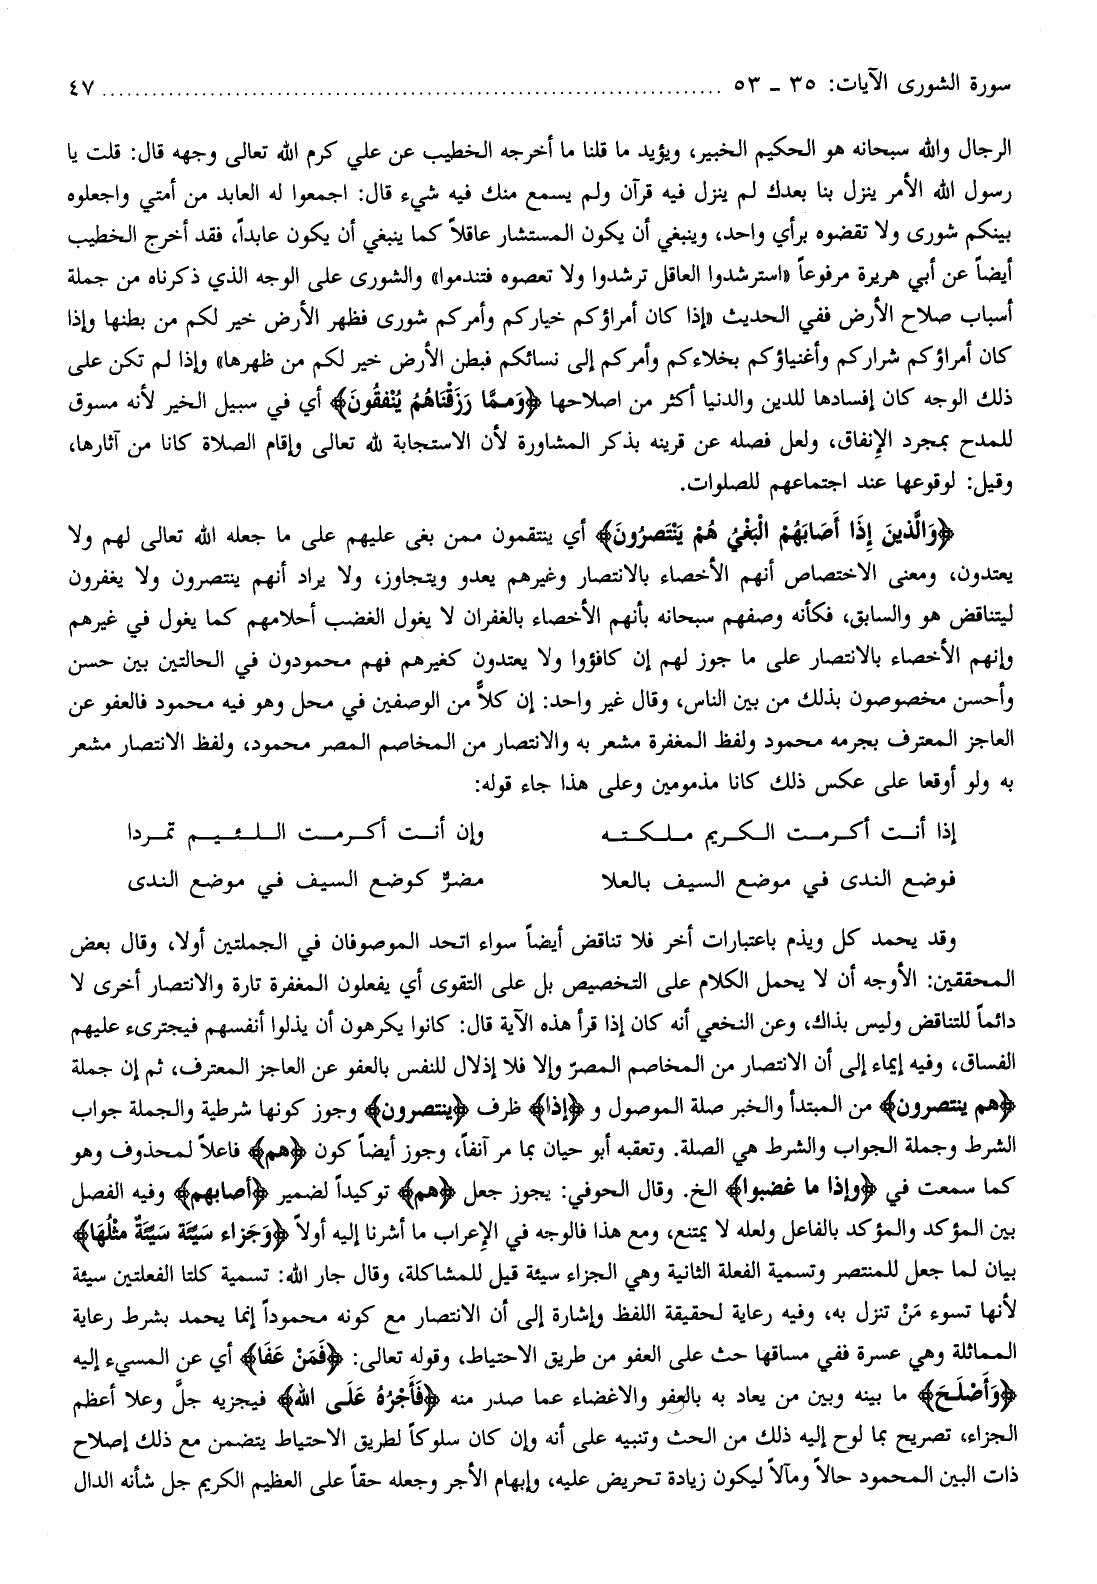 سورة الشورى الآيات: ٣٥ ـ ٥٣ ............................................................ ٤٧
الرجال والله سبحانه هو الحكيم الخبير، ويؤيد ما قلنا ما أخرجه الخطيب عن علي كرم الله تعالى وجهه قال: قلت يا
رسول الله الأمر ينزل بنا بعدك لم ينزل فيه قرآن ولم يسمع منك فيه شيء قال: اجمعوا له العابد من أمتي واجعلوه
بينكم شورى ولا تقضوه برأي واحد، وينبغي أن يكون المستشار عاقلاً كما ينبغي أن يكون عابداً، فقد أخرج الخطيب
أيضاً عن أبي هريرة مرفوعاً «استرشدوا العاقل ترشدوا ولا تعصوه فتندموا» والشورى على الوجه الذي ذكرناه من جملة
أسباب صلاح الأرض ففي الحديث «إذا كان أمراؤكم خياركم وأمركم شورى فظهر الأرض خير لكم من بطنها وإذا
كان أمراؤكم شراركم وأغنياؤكم بخلاءكم وأمركم إلى نسائكم فبطن الأرض خير لكم من ظهرها» وإذا لم تكن على
ذلك الوجه كان إفسادها للدين والدنيا أكثر من اصلاحها ﴿وَممَّا رَزَقْنَاهُمْ يُنْفقُونَ﴾ أي في سبيل الخير لأنه مسوق
للمدح بمجرد الإنفاق، ولعل فصله عن قرينه بذكر المشاورة لأن الاستجابة لله تعالى وإقام الصلاة كانا من آثارها،
وقيل: لوقوعها عند اجتماعهم للصلوات.
﴿وَالَّذينَ إذَا أَصَابَهُمْ الْبَغْيُ هُمْ يَنْتَصرُونَ﴾ أي ينتقمون ممن بغى عليهم على ما جعله الله تعالى لهم ولا
يعتدون، ومعنى الاختصاص أنهم الأخصاء بالانتصار وغيرهم يعدو ويتجاوز، ولا يراد أنهم ينتصرون ولا يغفرون
ليتناقض هو والسابق، فكأنه وصفهم سبحانه بأنهم الأخصاء بالغفران لا يغول الغضب أحلامهم كما يغول في غيرهم
وإنهم الأخصاء بالانتصار على ما جوز لهم إن كافؤوا ولا يعتدون كغيرهم فهم محمودون في الحالتين بين حسن
وأحسن مخصوصون بذلك من بين الناس، وقال غير واحد: إن كلاًّ من الوصفين في محل وهو فيه محمود فالعفو عن
العاجز المعترف بجرمه محمود ولفظ المغفرة مشعر به والانتصار من المخاصم المصر محمود، ولفظ الانتصار مشعر
به ولو أوقعا على عكس ذلك كانا مذمومين وعلى هذا جاء قوله:
إذا أنت أكرمت الكريم ملكته وإن أنت أكرمت اللئيم تمردا
فوضع الندى في موضع السيف بالعلا مضرٌّ كوضع السيف في موضع الندى
وقد يحمد كل ويذم باعتبارات أخر فلا تناقض أيضاً سواء اتحد الموصوفان في الجملتين أولا، وقال بعض
المحققين: الأوجه أن لا يحمل الكلام على التخصيص بل على التقوى أي يفعلون المغفرة تارة والانتصار أخرى لا
دائماً للتناقض وليس بذاك، وعن النخعي أنه كان إذا قرأ هذه الآية قال: كانوا يكرهون أن يذلوا أنفسهم فيجترىء عليهم
الفساق، وفيه إيماء إلى أن الانتصار من المخاصم المصرّ وإلا فلا إذلال للنفس بالعفو عن العاجز المعترف، ثم إن جملة
﴿هم ينتصرون﴾ من المبتدأ والخبر صلة الموصول و ﴿إذا﴾ ظرف ﴿ينتصرون﴾ وجوز كونها شرطية والجملة جواب
الشرط وجملة الجواب والشرط هي الصلة. وتعقبه أبو حيان بما مر آنفاً، وجوز أيضاً كون ﴿هم﴾ فاعلاً لمحذوف وهو
كما سمعت في ﴿وإذا ما غضبوا﴾ الخ. وقال الحوفي: يجوز جعل ﴿هم﴾ توكيداً لضمير ﴿أصابهم﴾ وفيه الفصل
بين المؤكد والمؤكد بالفاعل ولعله لا يمتنع، ومع هذا فالوجه في الإعراب ما أشرنا إليه أولاً ﴿وَجَزاء سَيِّئَة سَيِّئَةٌ مثْلُهَا﴾
بيان لما جعل للمنتصر وتسمية الفعلة الثانية وهي الجزاء سيئة قيل للمشاكلة، وقال جار الله: تسمية كلتا الفعلتين سيئة
لأنها تسوء مَنْ تنزل به، وفيه رعاية لحقيقة اللفظ وإشارة إلى أن الانتصار مع كونه محموداً إنما يحمد بشرط رعاية
المماثلة وهي عسرة ففي مساقها حث على العفو من طريق الاحتياط، وقوله تعالى: ﴿فَمَنْ عَفَا﴾ أي عن المسيء إليه
﴿وَأَصْلَحَ﴾ ما بينه وبين من يعاد به بالعفو والاغضاء عما صدر منه ﴿فَأَجْرُهُ عَلَى الله﴾ فيجزيه جلَّ وعلا أعظم
الجزاء، تصريح بما لوح إليه ذلك من الحث وتنبيه على أنه وإن كان سلوكاً لطريق الاحتياط يتضمن مع ذلك إصلاح
ذات البين المحمود حالاً ومآلاً ليكون زيادة تحريض عليه، وإبهام الأجر وجعله حقاً على العظيم الكريم جل شأنه الدال